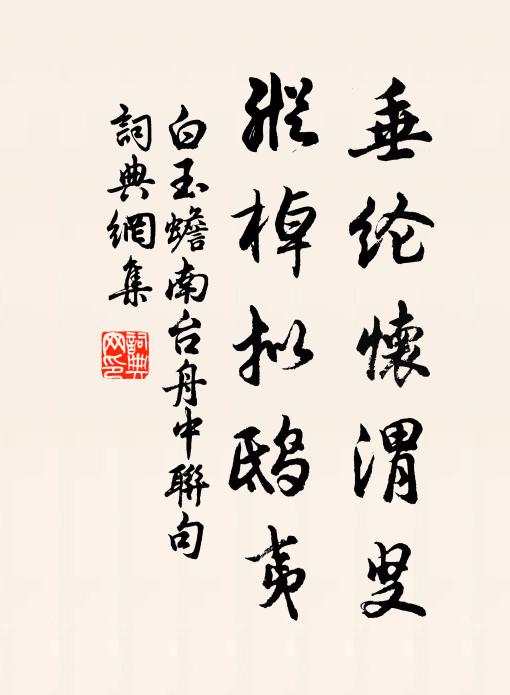 垂纶懷渭叟
縱棹拟鸱夷
白玉蟾南台舟中聯句
詞典網集
詞典网印